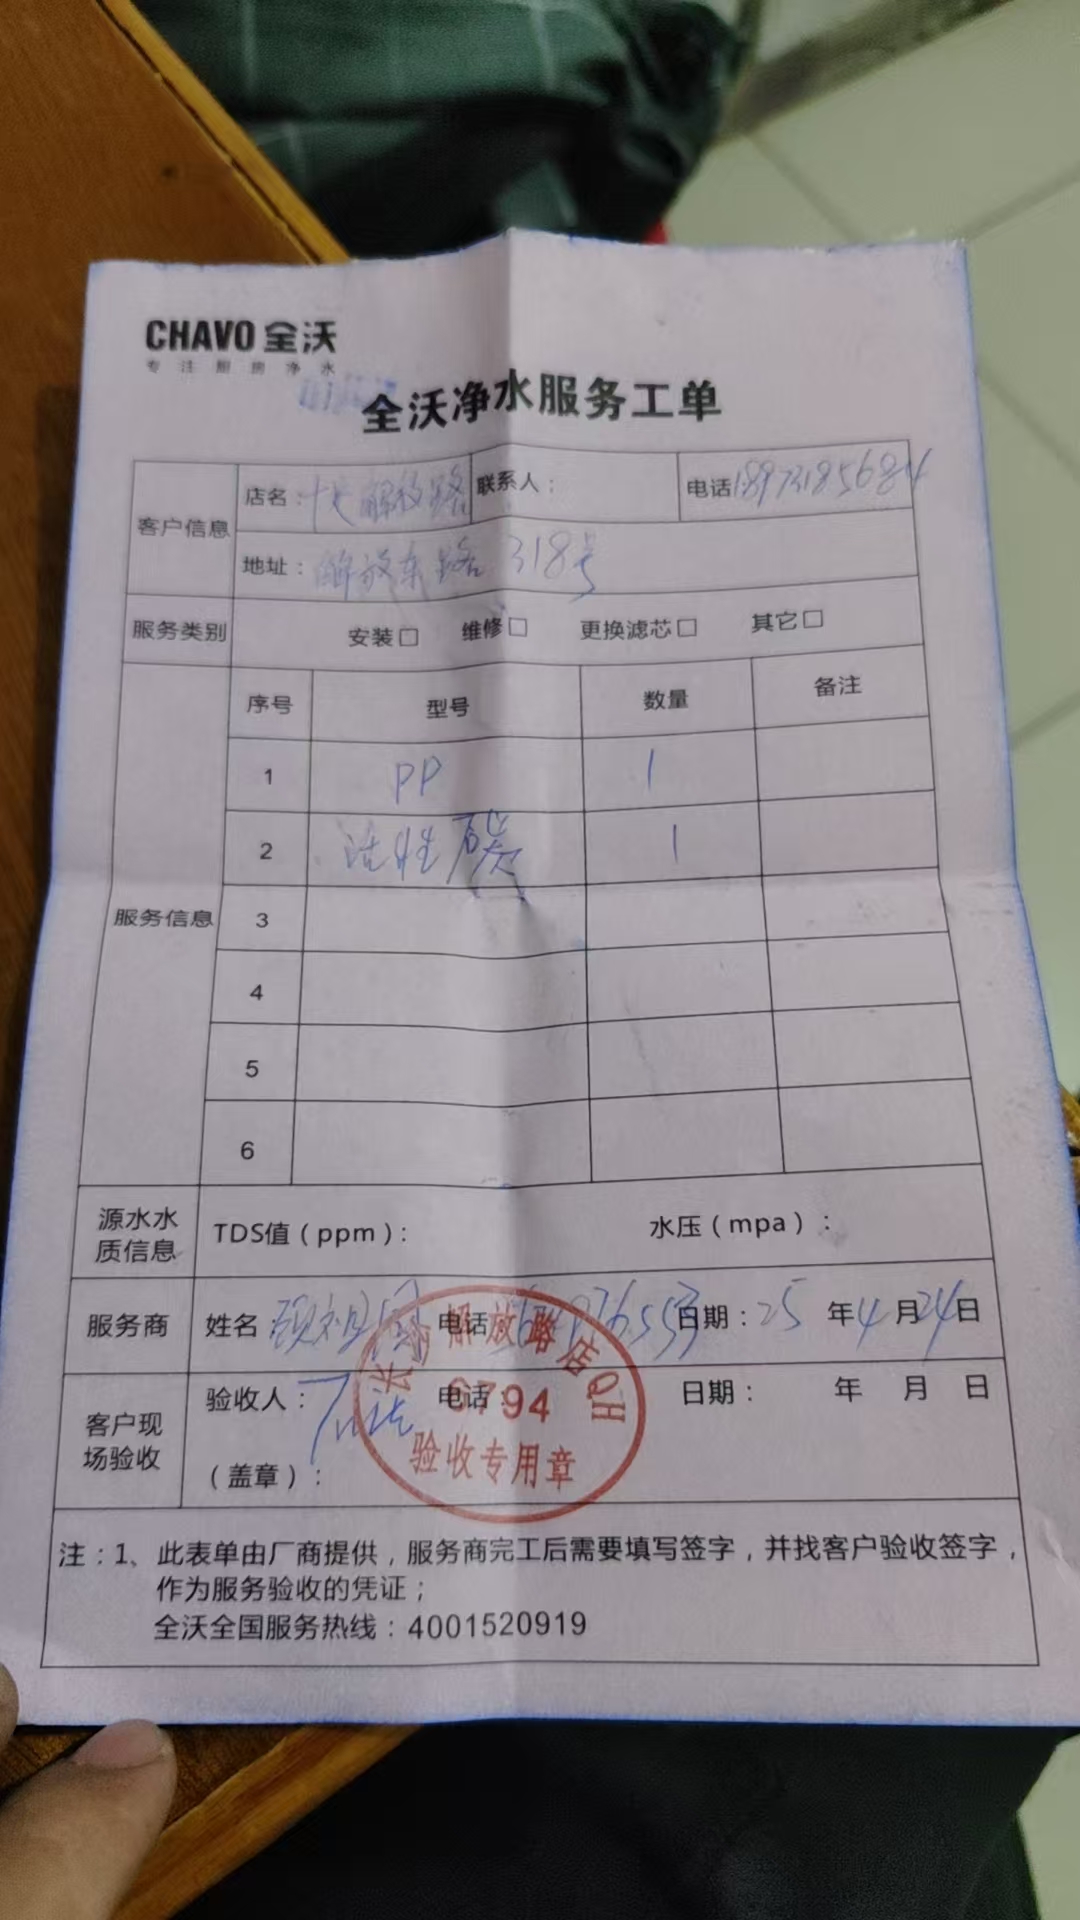 CHAVO 全沃
专注厨房净水
全沃净水服务工单
客户信息
店名： 解放路
联系人：
电话 18973185684
地址：解放东路 318号
服务类别
安装□ 维修□ 更换滤芯□ 其它□
服务信息
序号 型号 数量 备注
1 PP 1
2 活性碳 1
3
4
5
6
源水水质信息
TDS值（ppm）： 水压（mpa）：
服务商
姓名 电话 日期：25 年 4 月 24 日
客户现场验收
验收人： 电话： 日期： 年 月 日
（盖章）：
解放路店QH
6794
验收专用章
注：1、此表单由厂商提供，服务商完工后需要填写签字，并找客户验收签字，
作为服务验收的凭证；
全沃全国服务热线：4001520919